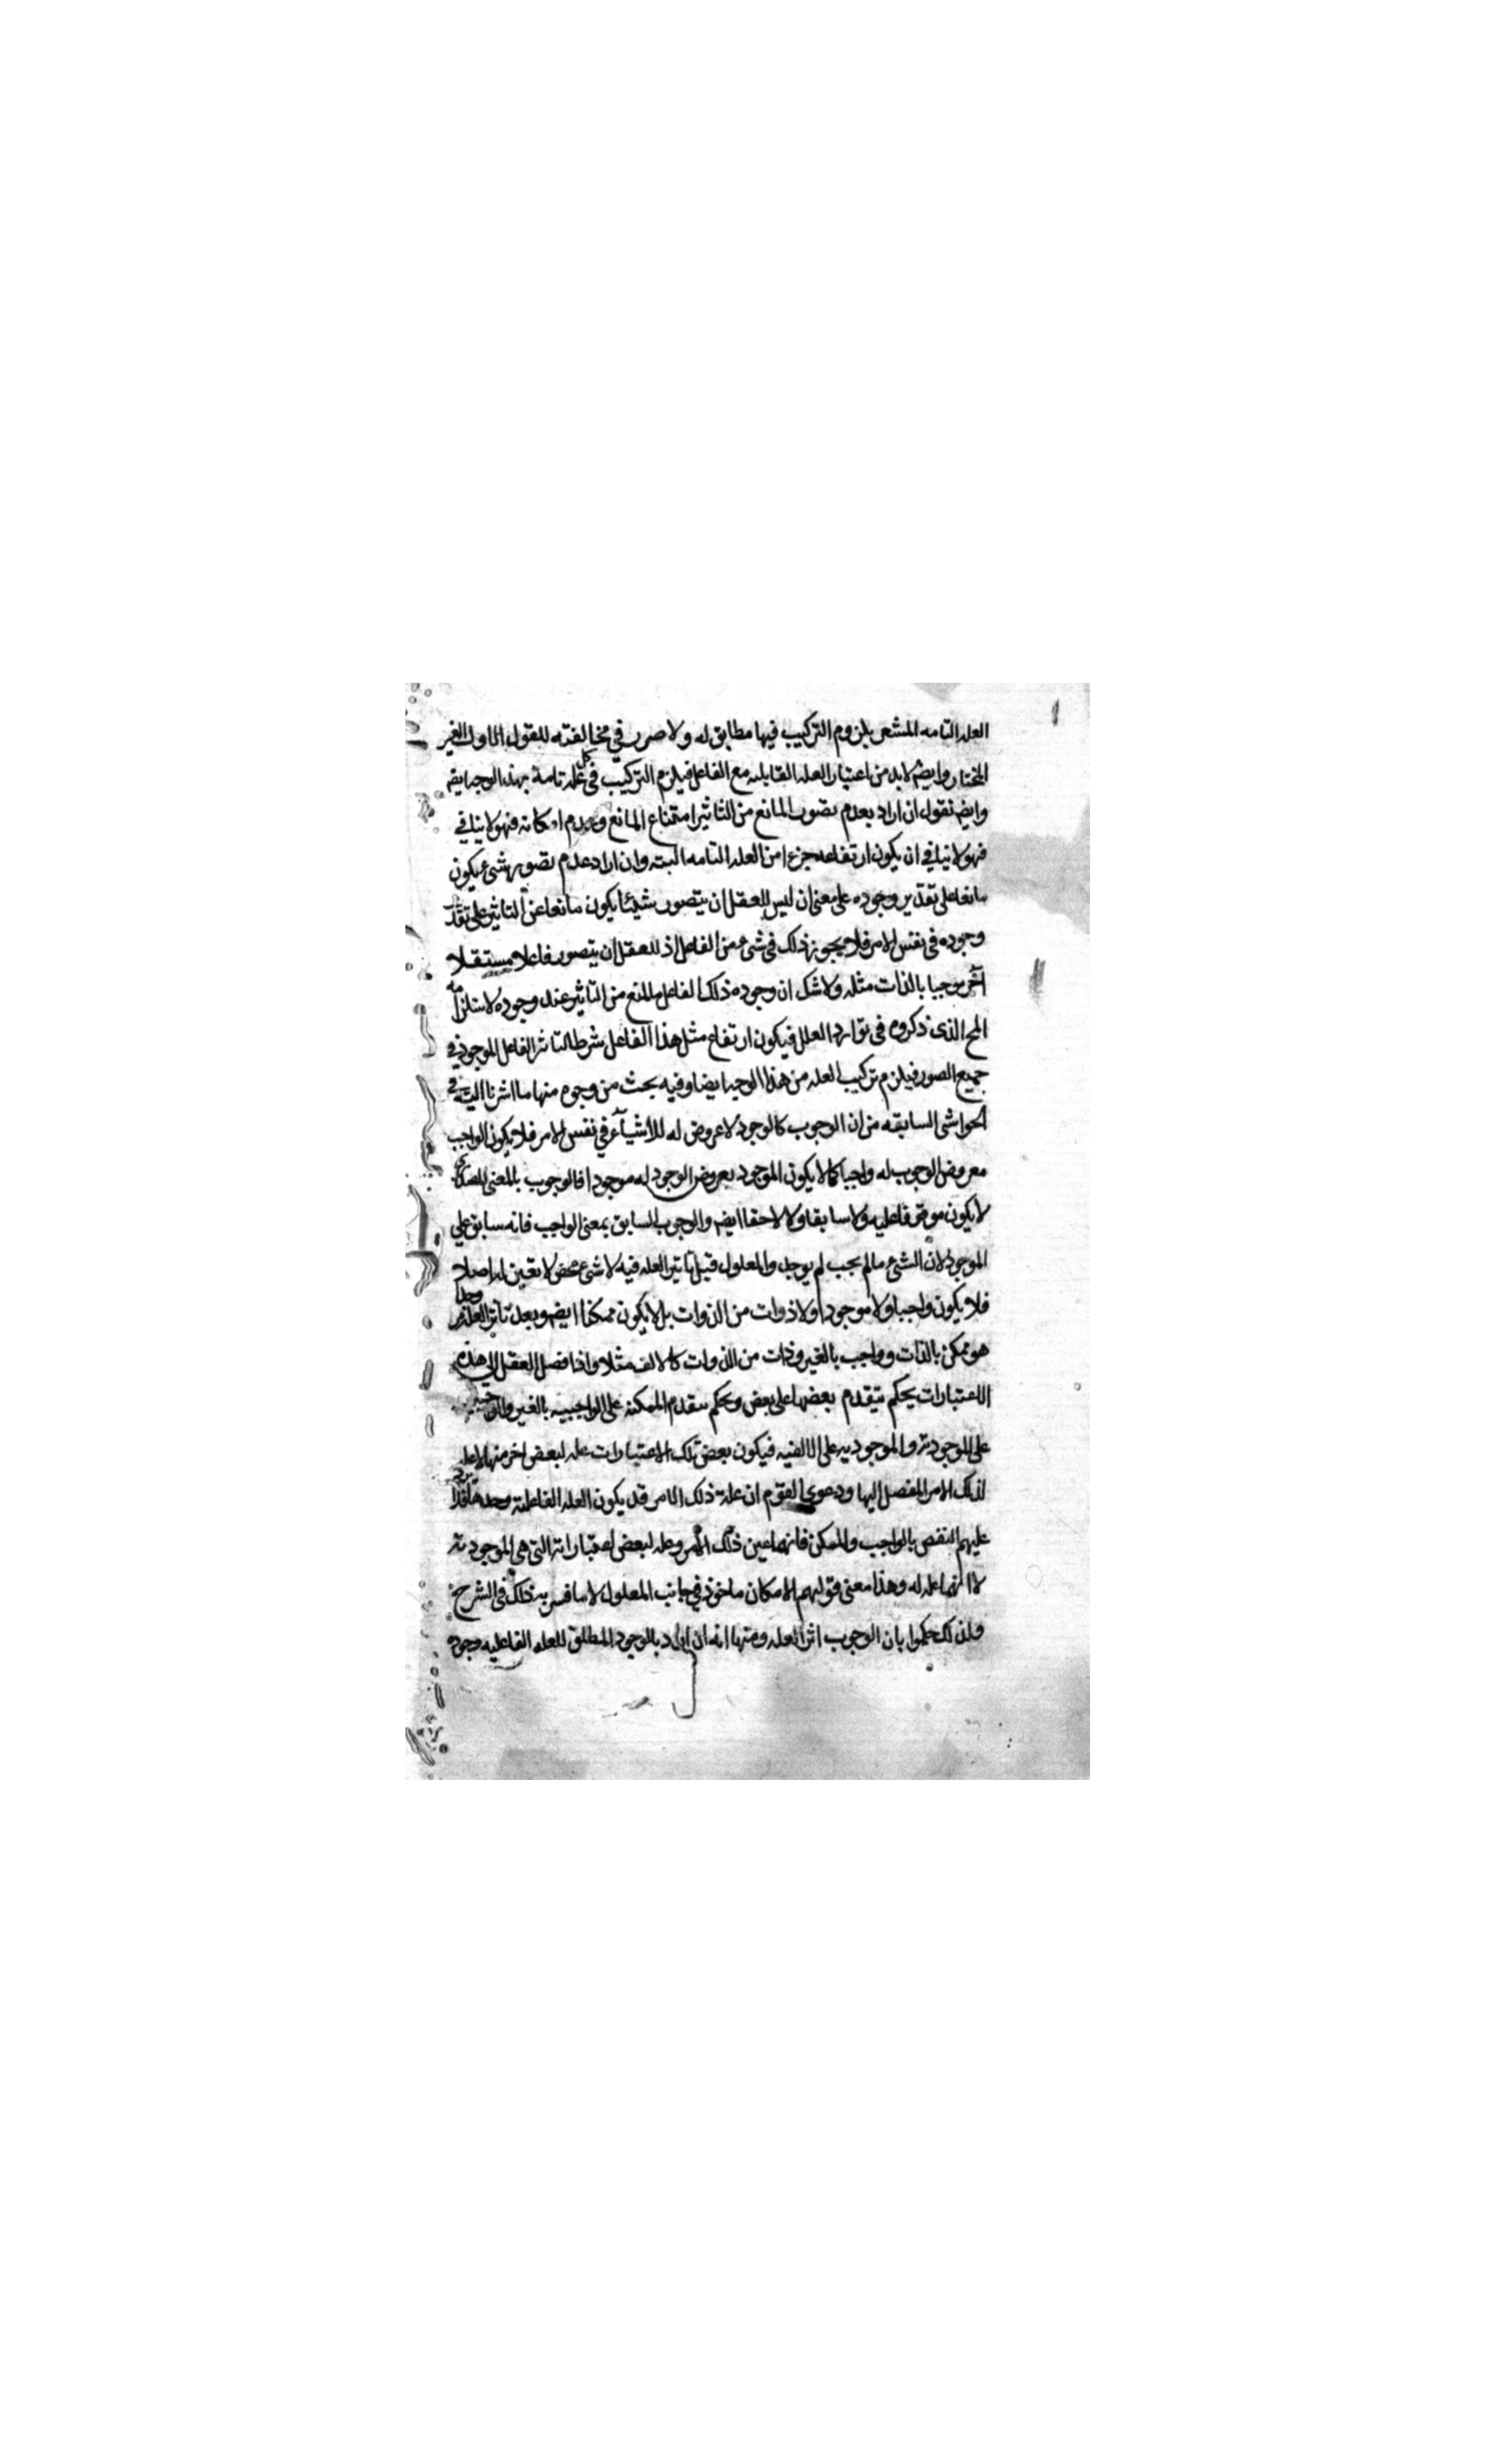 العله التامه المشعر بلزوم التركيب فيها مطابق له ولا ضرر في مخالفته للقول الماول الغير
المختار وايضم لابد من اعتبار العله القابليه مع الفاعل فيلزم التركيب في كل علة تامة بهذا الوجه ايضم
وايضم نقول ان اراد بعدم تصور المانع من التاثير امتناع المانع وعدم امكانه فهو لا ينافي
فهو لا ينافي ان يكون ارتفاعه جزءا من العله التامه البته وان اراد عدم تصور شيء يكون
مانعا على تقدير وجوده على معنى ان ليس للعقل ان يتصور شيئا يكون مانعا عن التاثير على تقدير
وجوده في نفس الامر فلا يجوز ذلك في شيء من الفاعل اذ للعقل ان يتصور فاعلا مستقلا
آخر موجبا بالذات مثله ولا شك ان وجوده ذلك الفاعل مانع من التاثير عند وجوده لاستلزامه
المح الذي ذكروه في توارد العلل فيكون ارتفاع مثل هذا الفاعل شرطا لتاثير الفاعل الموجود في
جميع الصور فيلزم تركيب العله من هذا الوجه ايضا وفيه بحث من وجوه منها ما اشرنا اليه في
الحواشي السابقه من ان الوجوب كالوجود لا عروض له للاشياء في نفس الامر فلا يكون الواجب
معروض الوجوب له واجبا كما لا يكون الموجود بعروض الوجود له موجودا فالوجوب بالمعنى المصدري
لا يكون فاعليه ولا سابقا ولا لاحقا ايضم والوجوب السابق بمعنى الواجب فانه سابق على
الموجود لان الشيء مالم يجب لم يوجد والمعلول قبل تاثير العله فيه لا شيء محض لا تعين له اصلا
فلا يكون واجبا ولا موجودا ولا ذوات من الذوات بل لا يكون ممكنا ايضم وبعد تاثير العله
هو ممكن بالذات وواجب بالغير وذات من الذوات كالالف مثلا واذا فصل العقل الى هذه
الاعتبارات يحكم بتقدم بعضها على بعض ويحكم بتقدم الممكنه على الواجبيه بالغير والواجبيه
على الموجوديه والموجوديه على الالفيه فيكون بعض تلك الاعتبارات عله لبعض اخر منها لا عله
لذلك الامر المفصل اليها ودعوى القوم ان علة ذلك الامر قد يكون العله الفاعلية وحدها فلا يرد
عليهم النقض بالواجب والممكن فانهما عين ذلك الامر وعله لبعض اعتباراته التي هي الموجوديه
لا انهما عله له وهذا معنى قولهم الامكان ماخوذ في جانب المعلول لا ما فسر به ذلك في الشرح
ولذلك حكموا بان الوجوب اثر العله ومنها انه ان اراد بالوجود المطلق للعله الفاعليه وجوده